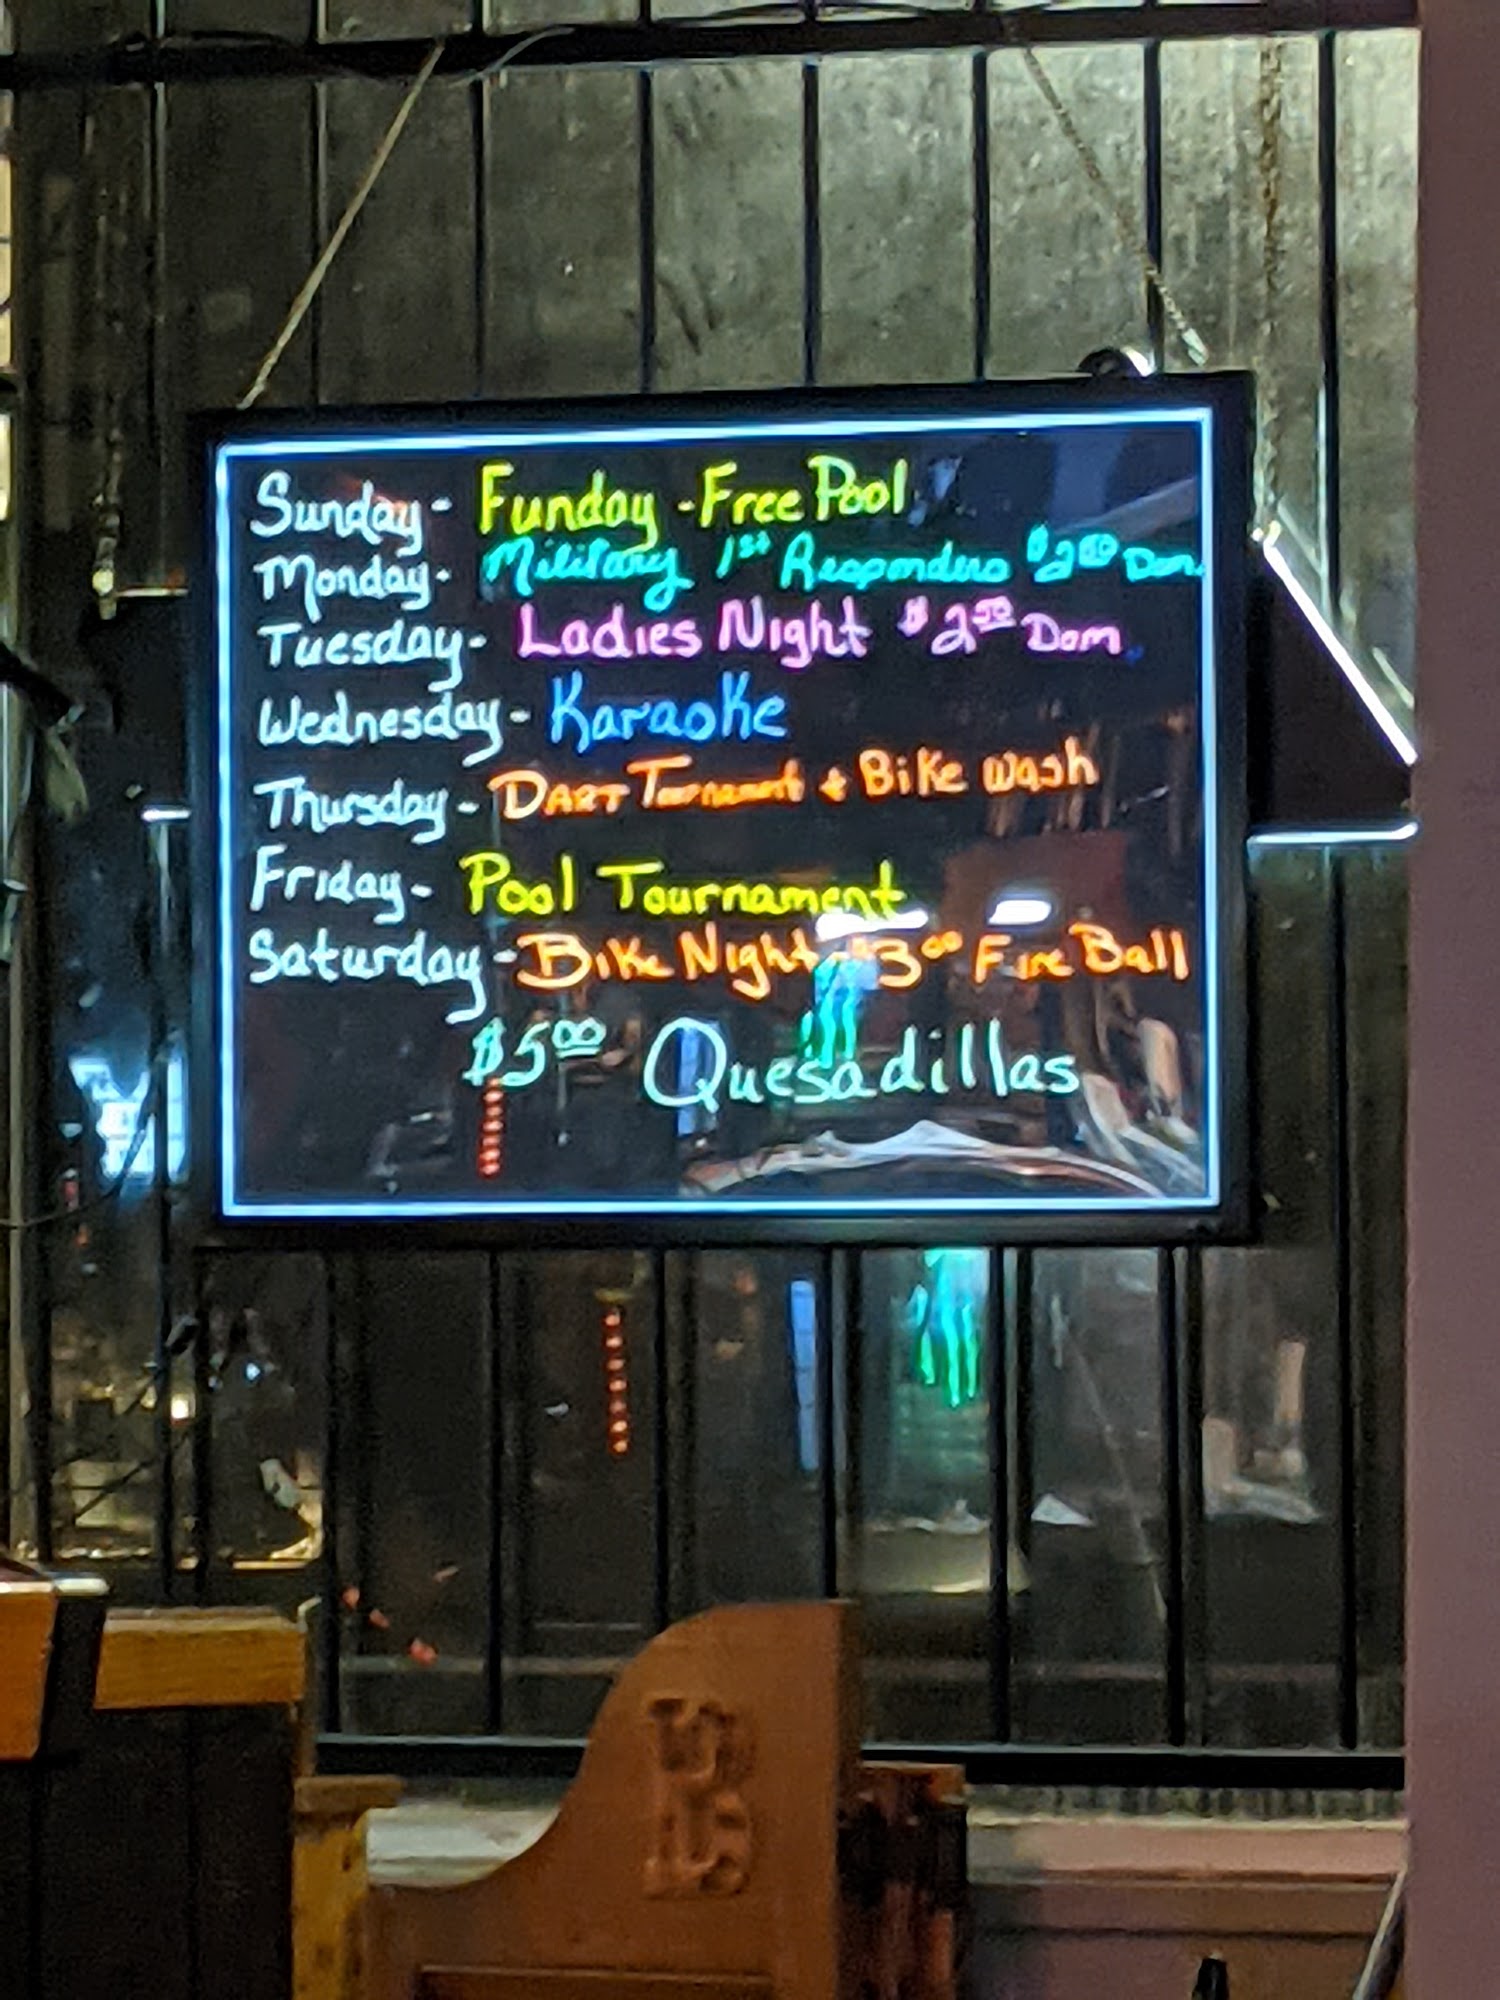 Sunday - Funday - Free Pool
Monday - Military 1st Responders $2.50 Dom.
Tuesday - Ladies Night $2.50 Dom.
Wednesday - Karaoke
Thursday - Dart Tournament + Bike Wash
Friday - Pool Tournament
Saturday - Bike Night $3.00 Fire Ball
$5.00 Quesadillas